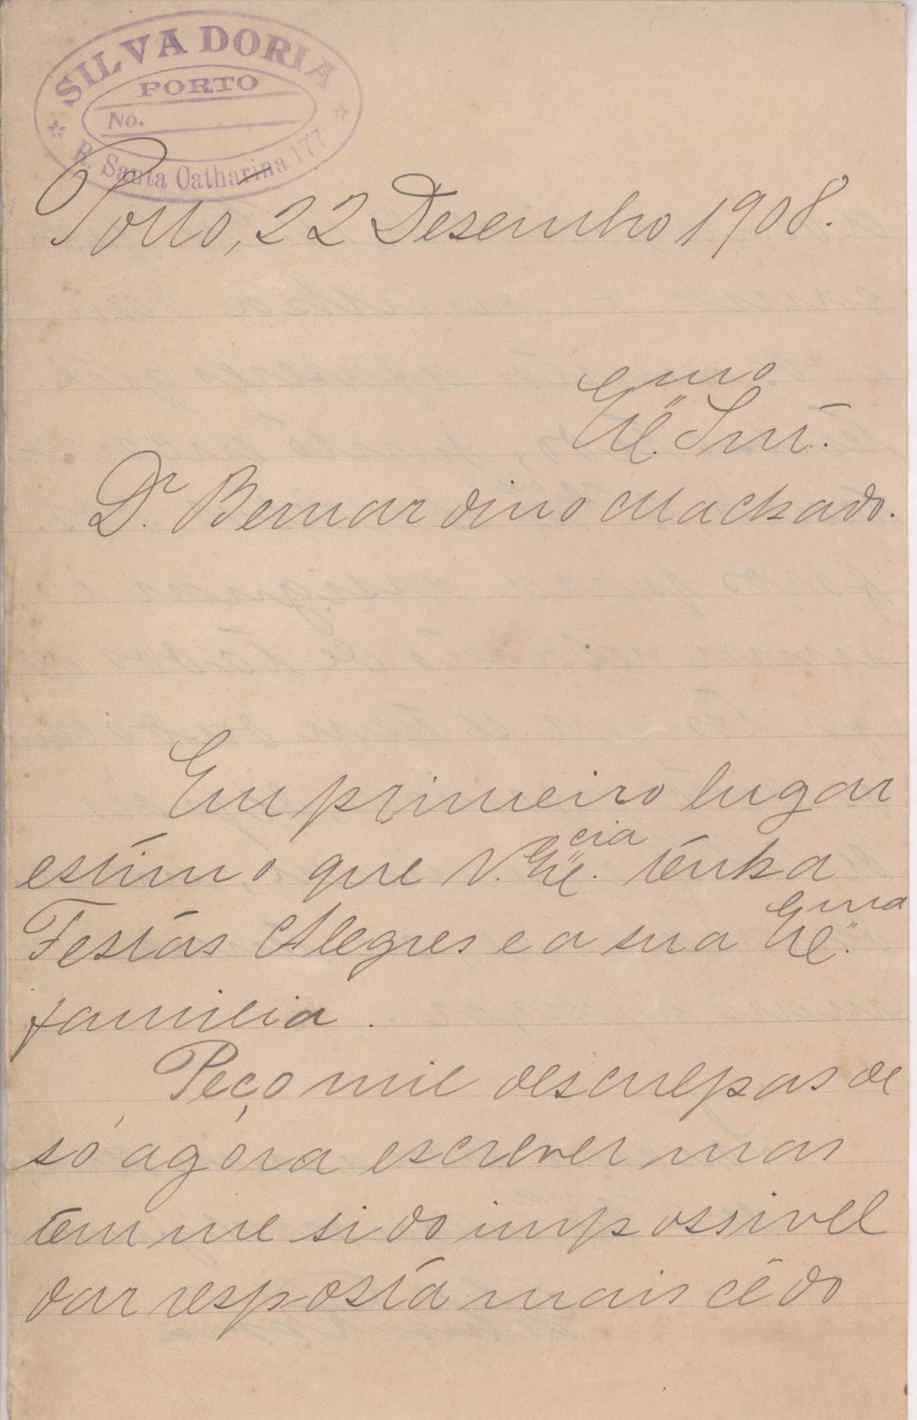 SILVA DORIA
PORTO
No.
R. Santa Catharina 177
Porto, 22 Desembro 1908.
Ex.mo Snr.
Dr. Bernardino Machado.
Em primeiro lugar
estimo que V. Ex.cia tenha
Festas Alegres e a sua Ex.ma
familia.
Peço mil desculpas de
só agora escrever mas
tem me sido impossivel
dar resposta mais cêdo